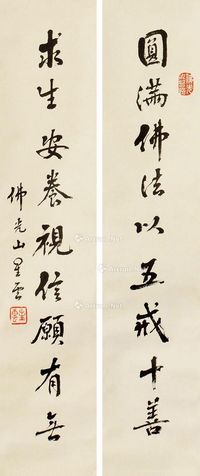 圓滿佛法以五戒十善
求生安養視信願有無
佛光山星雲